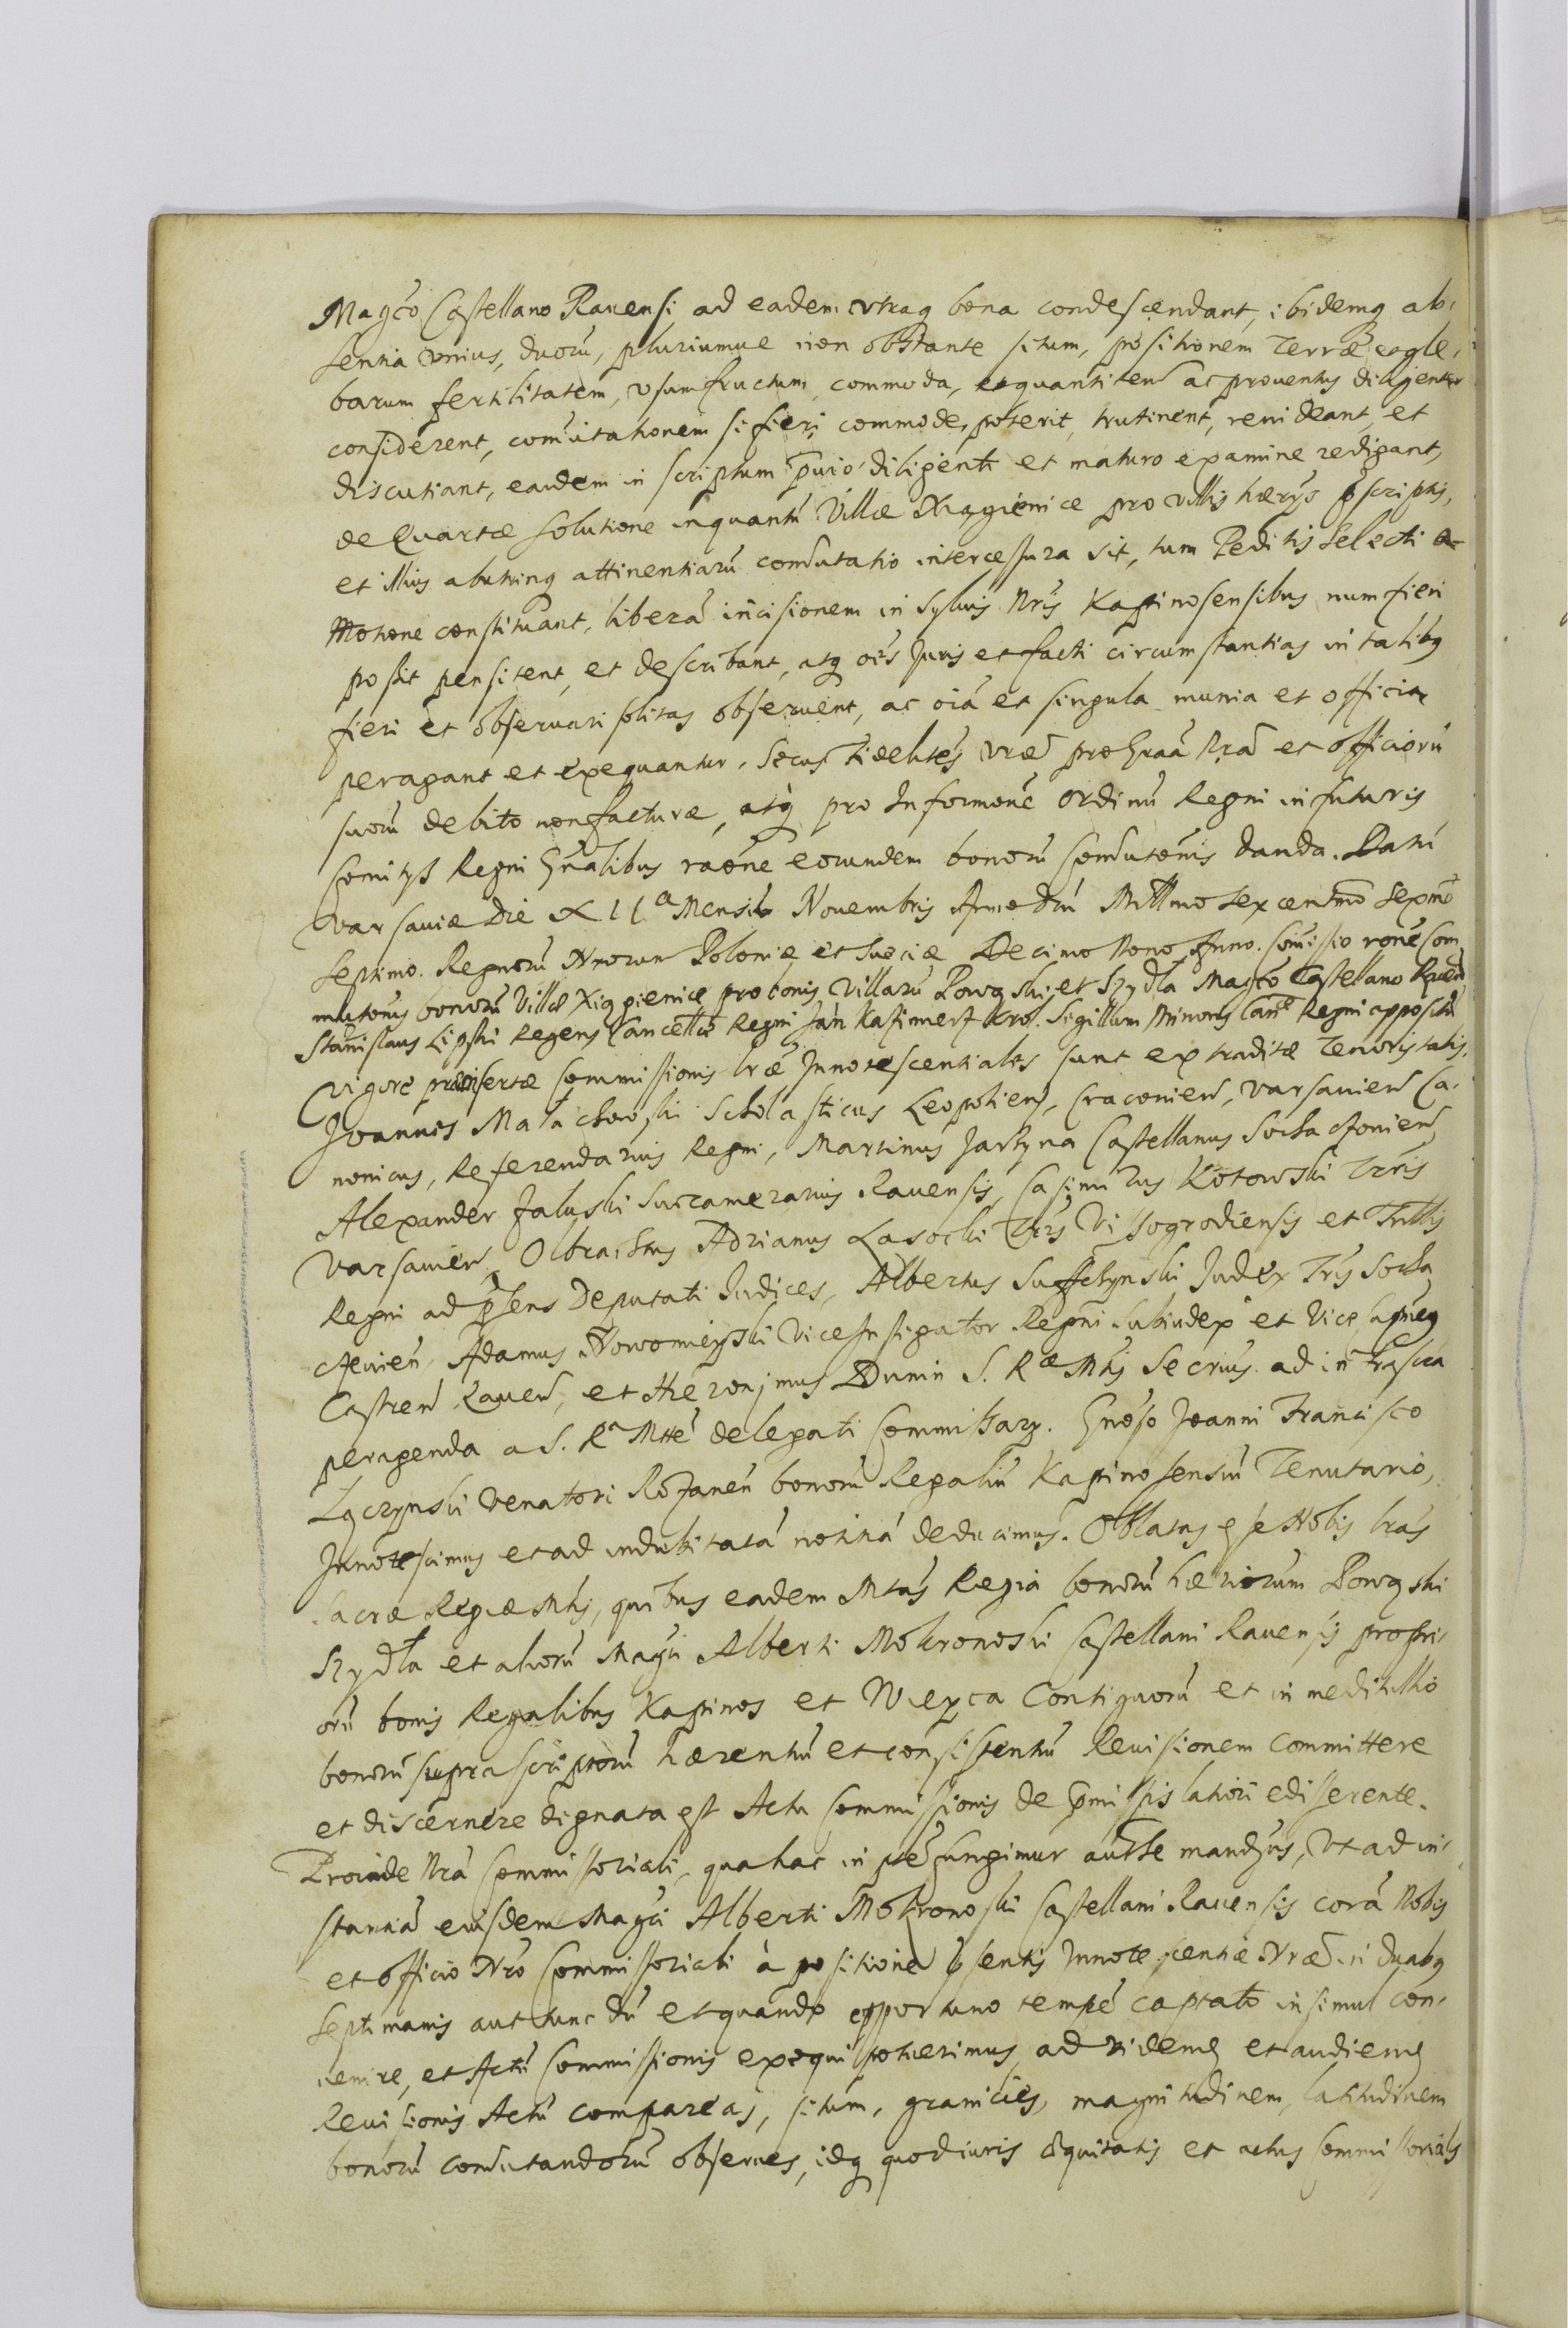 Magco Castellano Rauensi, ad eadem vtraq bona condescendant, ibidemq ab,
sentia vnius, duorū, pluriumue non obstante situm, positionem Terræ et gle,
barum fertilitatem, vsumfructum, commoda, et quantiten ac prouentus diligenter
considerent, comūtationem si fieri commode poterit, trutinent, reuideant, et
discutiant, eandem in scriptum pũio diligenti et maturo examine redigant,
de Quartæ solutione inquantū Villæ Xiągienice pro villis hærys pscriptis,
et illius abutrinq attinentiarū comūtatio intercessura sit, tum Peditis Selecti
Motione constituant, liberā incisionem in Syluis Nris Kapinosensibus num fieri
possit pensitent, et describant, atq oēs Juris et facti circumstantias in talibq
fieri et obseruari solitas obseruent, ac oiā et singula munia et officia
peragant et exequantur. Secus Fidelites vræ pro Graā Nrā et officiorū
suorū debito non facturæ, atq pro Informone Ordinū Regni in futuris
Comitys Regni Gnalibus raōne eorundem bonorū Comutōnis danda. Datū
Varsauiæ die XIIa Mensis Nouembris Anno Dni Millmo Sexcentmo Sexmo
Septimo. Regnorū Nrorum Poloniæ et Sueciæ Decimo Nono Anno. Comissio rone Com
mutonis bonorū Villæ Xiągienice pro bonis Villarū Powązki et Szydła Magco Castellano Rauen
Stanislaus Lipski Regens Cancellæ Regni Jan Kazimierz Krol. Sigillum Minoris Canc Regni appositū
Vigore præinsertæ Commissionis lræ Innotescentiales sunt extraditæ Tenoris talis.
Joannes Małachowski Scholasticus Leopolien, Cracouien, Varsauien Ca,
nonicus, Referendarius Regni, Martinus Jarzyna Castellanus Sochaczouien,
Alexander Załuski Succamerarius Rauensis, Casimirus Kotowski Trris
Varsauien, Olbrachtus Adrianus Lasocki Trris Vissogrodiensis et Trillis
Regni ad præsens Deputati Iudices, Albertus Suffczynski Iudex Tris Socha
czeuien, Adamus Nowomieyski Vice Instigator Regni Subiudex et Vice Capneq
Castren Rauen, et Hieronimus Dunin S. Ræ Mttis Secrius ad infrascra
peragenda a S. Ra Mtte delegati Commissary. Gnoso Joanni Francisco
Łączynski Venatori Rożanen bonorū Regaliū Kapinosensiū Tenutario,
Innotescimus et ad indubitatā notitiā deducimus. Oblatas esse Nobis lrās
Sacræ Regiæ Mttis, quibus eadem Mtas Regia bonorū hæriorum Powązki
Szydła et aliorū Magci Alberti Mokronoski Castellani Rauensis propri,
orū bonis Regalibus Kapinos et Wieyca Contiguorū et in meditullio
bonorū suprascriptorū hærentiū et consistentiū Reuisionem Committere
et discernere dignata est Actu Commissionis de præmissis latiori edisserente.
Proinde Nrā Commissoriali, qua hac in pte fungimur autthe mandms, Vt ad in,
stantiā eiusdem Magci Alberti Mokronoski Castellani Rauensis corā Nobis
et officio Nro Commissoriali à positione præsentis Innotescentiæ Nræ in duabq
Septimanis aut tunc dū et quando opportuno tempe captato insimul con,
uenire, et Actū Commissionis exequi poterimus, ad videnq et audienq
Reuisionis Actū compareas, situm, granicies, magnitudinem, latitudinem
bonorū comutandorū obserues, idq quod iuris æquitatis et actus Commissorialis